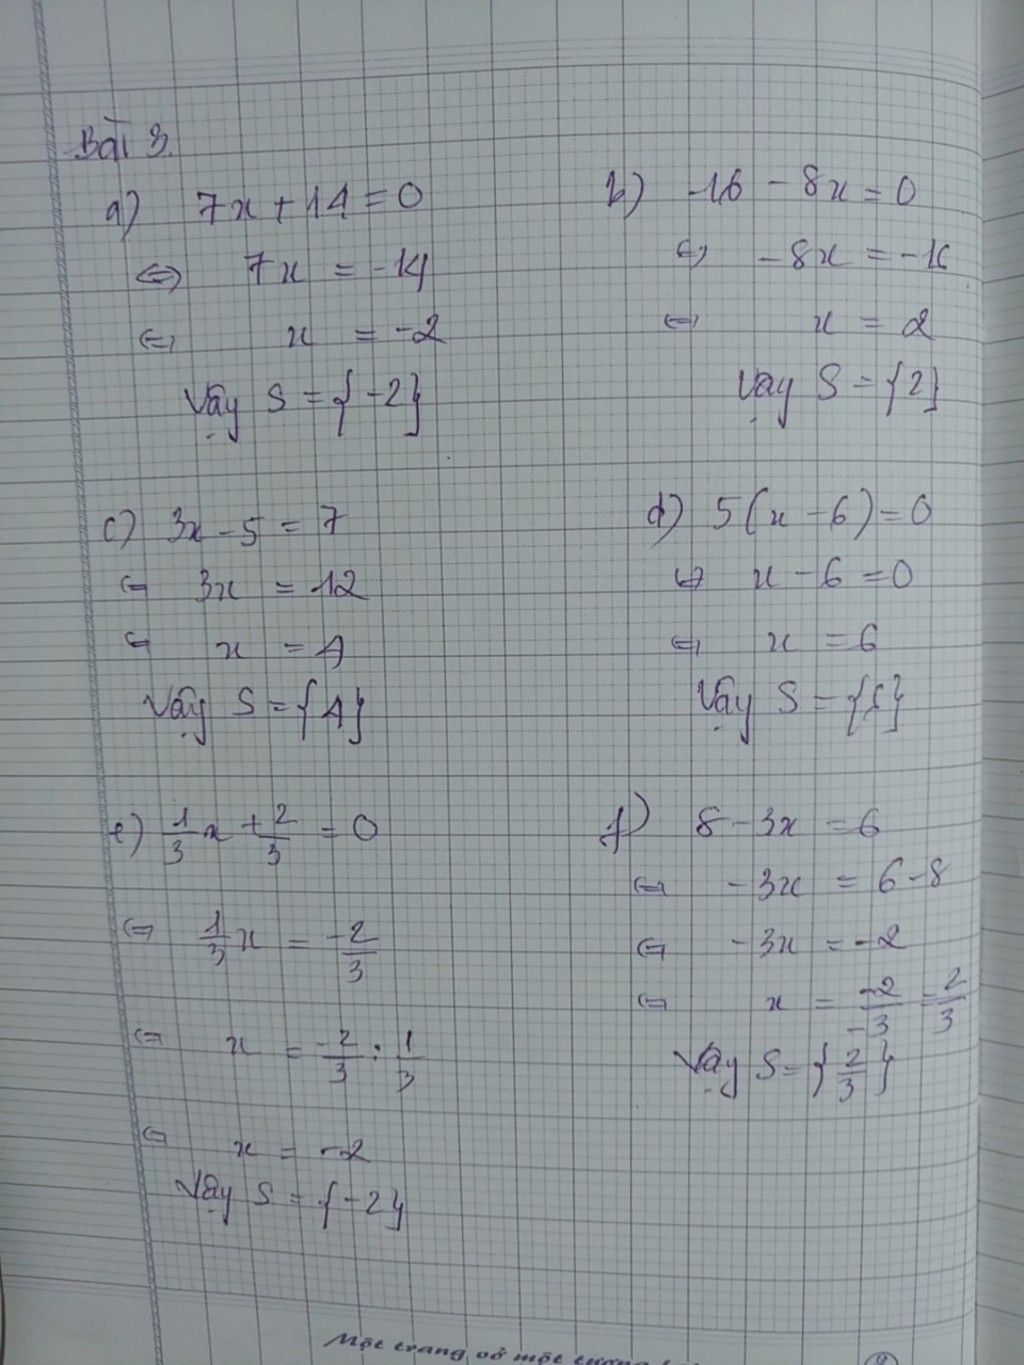 Bài 3.
a) 7x + 14 = 0
⇔ 7x = -14
⇔ x = -2
Vậy S = {-2}
b) -16 - 8x = 0
⇔ -8x = -16
⇔ x = 2
Vậy S = {2}
c) 3x - 5 = 7
⇔ 3x = 12
⇔ x = 4
Vậy S = {4}
d) 5(x - 6) = 0
⇔ x - 6 = 0
⇔ x = 6
Vậy S = {6}
e) 1/3 x + 2/3 = 0
⇔ 1/3 x = -2/3
⇔ x = -2/3 : 1/3
⇔ x = -2
Vậy S = {-2}
f) 8 - 3x = 6
⇔ -3x = 6 - 8
⇔ -3x = -2
⇔ x = -2/-3 = 2/3
Vậy S = {2/3}
Một trang vở một